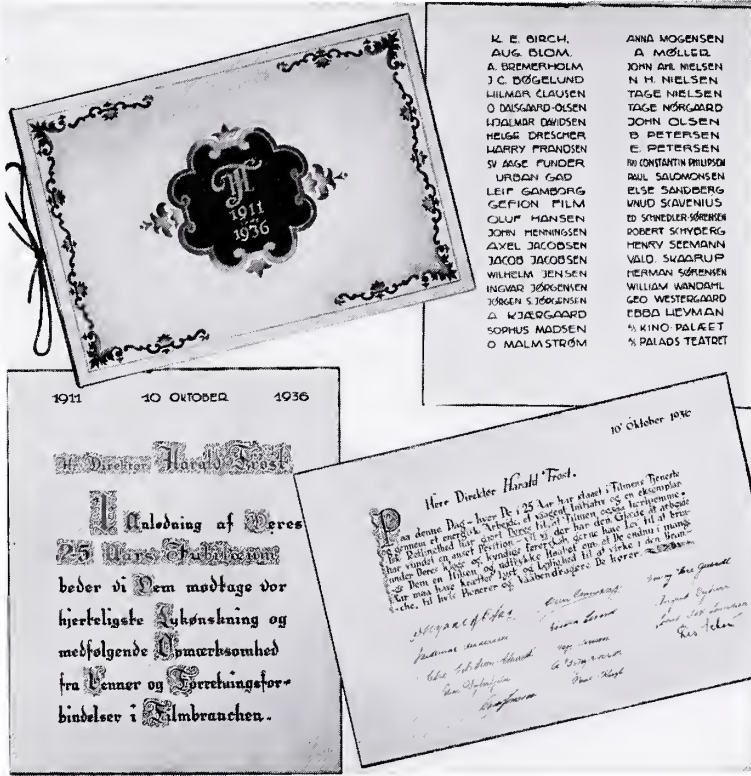 1911
1936
K. E. BIRCH.
AUG. BLOM.
A. BREMERHOLM
J C. BØGELUND
HILMAR CLAUSEN
O DALSGAARD-OLSEN
HJALMAR DAVIDSEN
HELGE DRESCHER
HARRY FRANDSEN
SV AAGE FUNDER
URBAN GAD
LEIF GAMBORG
GEFION FILM
OLUF HANSEN
JOHN HENNINGSEN
AXEL JACOBSEN
JACOB JACOBSEN
WILHELM JENSEN
INGVAR JØRGENSEN
JØRGEN S. JØRGENSEN
A KJÆRGAARD
SOPHUS MADSEN
O MALMSTRØM
ANNA MOGENSEN
A MØLLER
JOHN AHL NIELSEN
N H. NIELSEN
TAGE NIELSEN
TAGE NØRGAARD
JOHN OLSEN
B PETERSEN
E. PETERSEN
CONSTANTIN PHILIPSEN
PAUL SALOMONSEN
ELSE SANDBERG
KNUD SCAVENIUS
ED SCHNEDLER-SØRENSEN
ROBERT SCHYBERG
HENRY SEEMANN
VALD. SKAARUP
HERMAN SØRENSEN
WILLIAM WANDAHL
GEO WESTERGAARD
EBBA HEYMAN
A/S KINO-PALÆET
A/S PALADS TEATRET
1911 10 OKTOBER 1936
Hr. Direktør Harald Frost.
I Anledning af Deres
25 Aars Jubilæum
beder vi Dem modtage vor
hjerteligste Lykønskning og
medfølgende Opmærksomhed
fra Venner og Forretningsfor-
bindelser i Filmbranchen.
10' Oktober 1936
Herr Direktør Harald Frost.
Paa denne Dag - hvor De i 25 Aar har staaet i Filmens Tjeneste
gennem et energisk Arbejde, et vaagent Initiativ og en eksemplar-
isk Retlinethed har gjort Deres til, at Filmen, ogsaa herhjemme,
har vundet en anset Position, vil vi, der har den Glæde at arbejde
under Deres kloge og kyndige Førerskab, gerne have Lov til at brin-
ge Dem en Hilsen og udtrykke Haabet om, at De endnu i mange
Aar maa have Kræfter, Lyst og Lejlighed til at virke i den Bran-
che, til hvis Pionerer og Vaabendragere De hører.